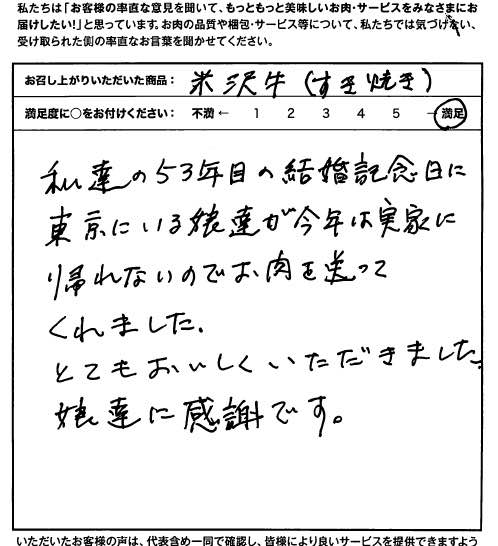 私たちは「お客様の率直な意見を聞いて、もっともっと美味しいお肉・サービスをみなさまにお
届けしたい!」と思っています。お肉の品質や梱包・サービス等について、私たちでは気づけない、
受け取られた側の率直なお言葉を聞かせてください。
お召し上がりいただいた商品： 米沢牛(すき焼き)
満足度に○をお付けください： 不満 ← 1 2 3 4 5 → 満足
私達の53年目の結婚記念日に
東京にいる娘達が今年は実家に
帰れないのでお肉を送って
くれました.
とてもおいしくいただきました.
娘達に感謝です。
いただいたお客様の声は、代表含め一同で確認し、皆様により良いサービスを提供できますよう